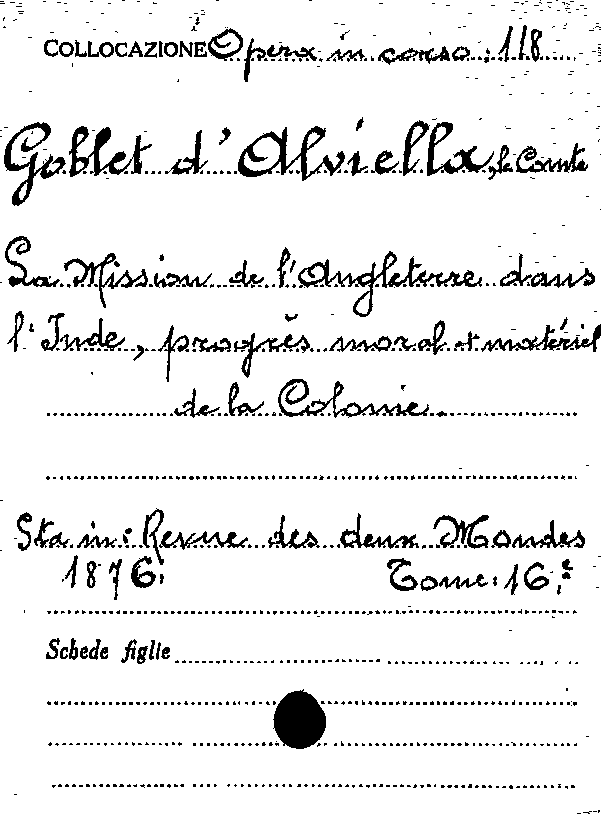 COLLOCAZIONE Opera in corso: 118
Goblet d'Alviella, le Comte
La Mission de l'Angleterre dans
l'Inde, progrès moral et matériel
de la Colonie.
Sta in: Revue des deux Mondes
1876. Tome: 16.e
Schede figlie